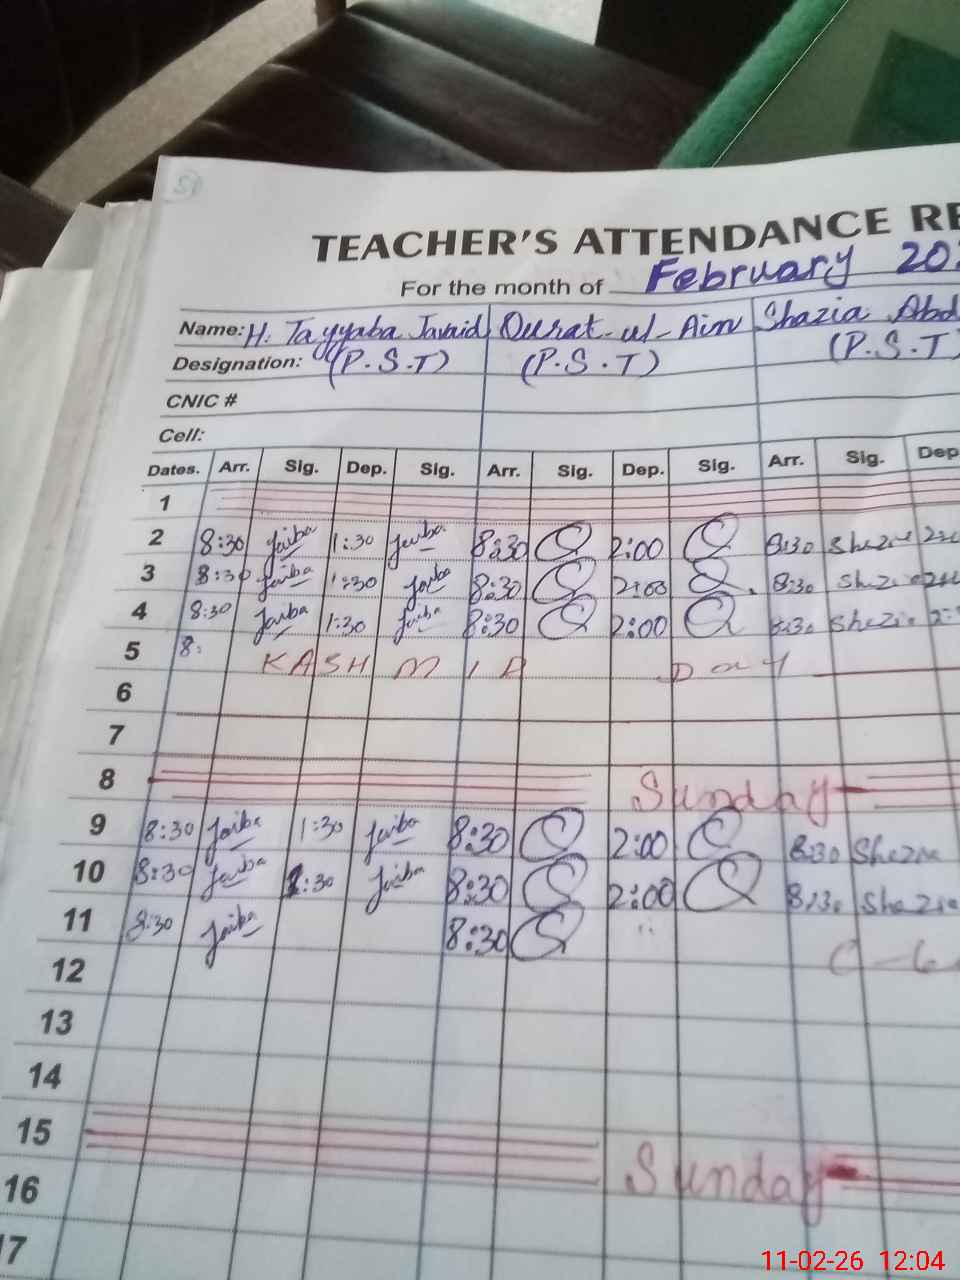 51
TEACHER'S ATTENDANCE RE
For the month of February 202
Name: H. Tayyaba Javaid Qurat-ul-Ain Shazia Abd
Designation: (P.S.T) (P.S.T) (P.S.T)
CNIC #
Cell:
Dates. Arr. Sig. Dep. Sig. Arr. Sig. Dep. Sig. Arr. Sig. Dep
1
2 8:30 1:30 8:30 2:00 8:30
3 8:30 1:30 8:30 2:00 8:30
4 8:30 1:30 8:30 2:00 8:30
5 8: KASHMIR Day
6
7
8 Sunday
9 8:30 1:30 8:30 2:00 8:30
10 8:30 1:30 8:30 2:00 8:30
11 8:30 8:30
12
13
14
15 Sunday
16
17
11-02-26 12:04